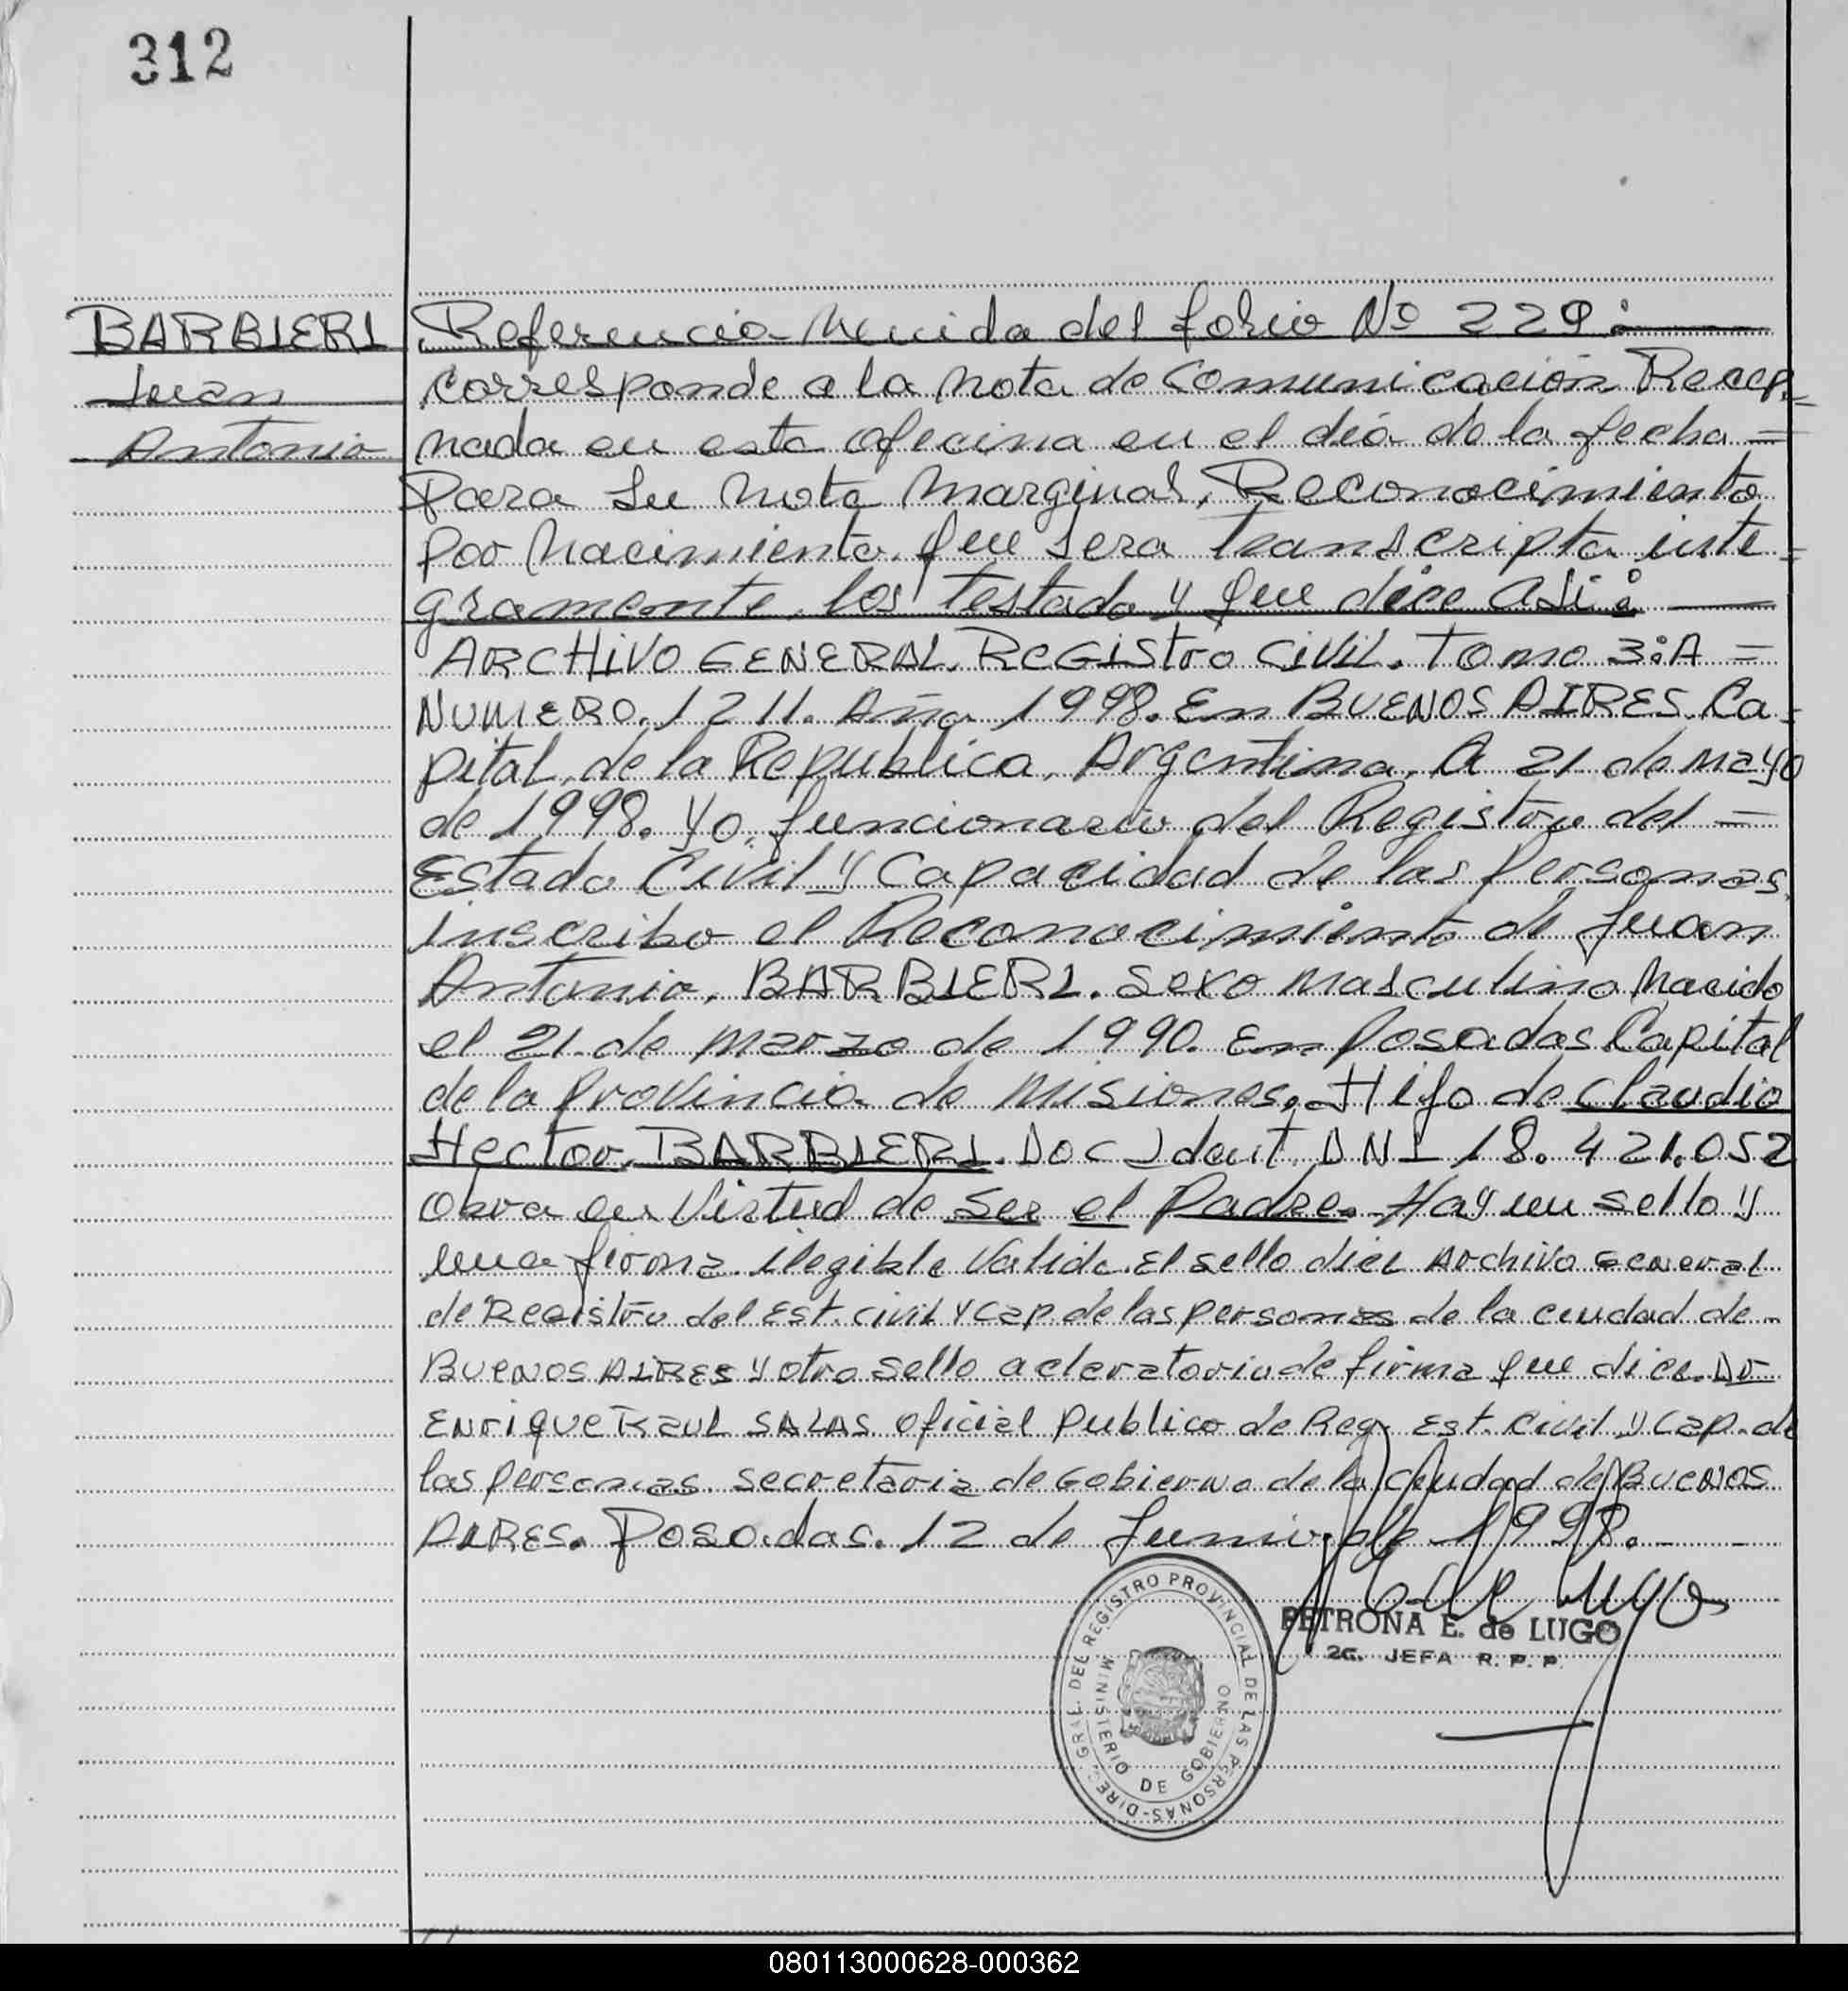 312
BARBIERI
Juan
Antonio
Referencia Venida del folio Nº 229:
Corresponde a la Nota de Comunicación Recep=
nada en esta oficina en el día de la fecha =
Para su Nota Marginal, Reconocimiento
por Nacimiento que sera transcripta inte=
gramente, los testado y que dice asi:
ARCHIVO GENERAL. REGIStro CIVIL. Tomo 3:A =
NUMERO. 1211. Año 1998. En BUENOS AIRES. Ca=
pital, de la Republica, Argentina, A 21 de Mayo
de 1998. Yo, funcionario del Registro del =
Estado Civil y Capacidad de las Personas,
inscribo el Reconocimiento de Juan
Antonio, BARBIERI. Sexo Masculino Nacido
el 21 de Marzo de 1990. En Posadas Capital
de la Provincia de Misiones, Hijo de Claudio
Hector, BARBIERI. Doc Ident. DNI 18.421.052
Obra en Virtud de Ser el Padre. Hay un sello y
una firma ilegible Valida. El sello dice Archivo General
de Registro del Est. Civil y Cap. de las personas de la ciudad de
BUENOS AIRES y otro sello acleratorio de firma que dice. Dr
ENrique Raul SALAS Oficial Publico de Reg. Est. Civil y Cap. de
las personas. Secretaria de Gobierno de la Ciudad de BUENOS
AIRES. Posadas. 12 de Junio de 1998.
PETRONA E. de LUGO
2G. JEFA R. P. P.
DIREC. GRAL. DEL REGISTRO PROVINCIAL DE LAS PERSONAS-
MINISTERIO DE GOBIERNO
080113000628-000362